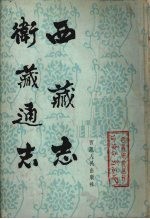 西藏志
衛藏通志
西藏人民出版社